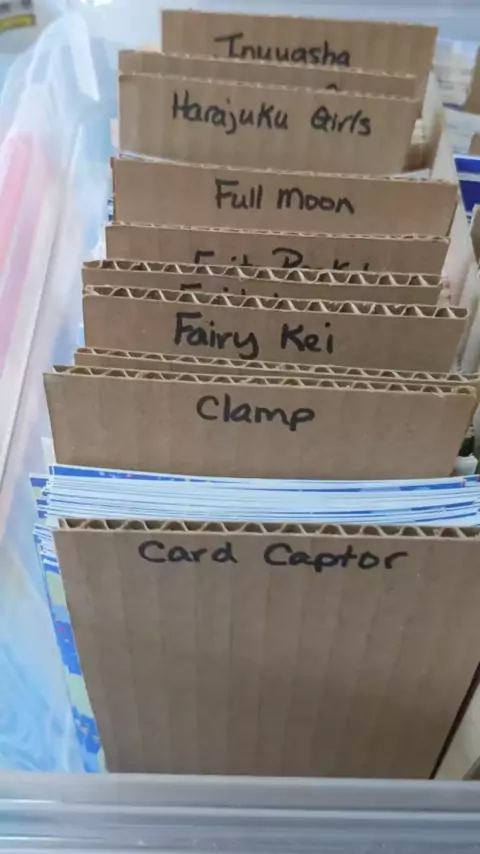 Inuuasha
Harajuku Girls
Full Moon
Fairy Kei
Clamp
Card Captor